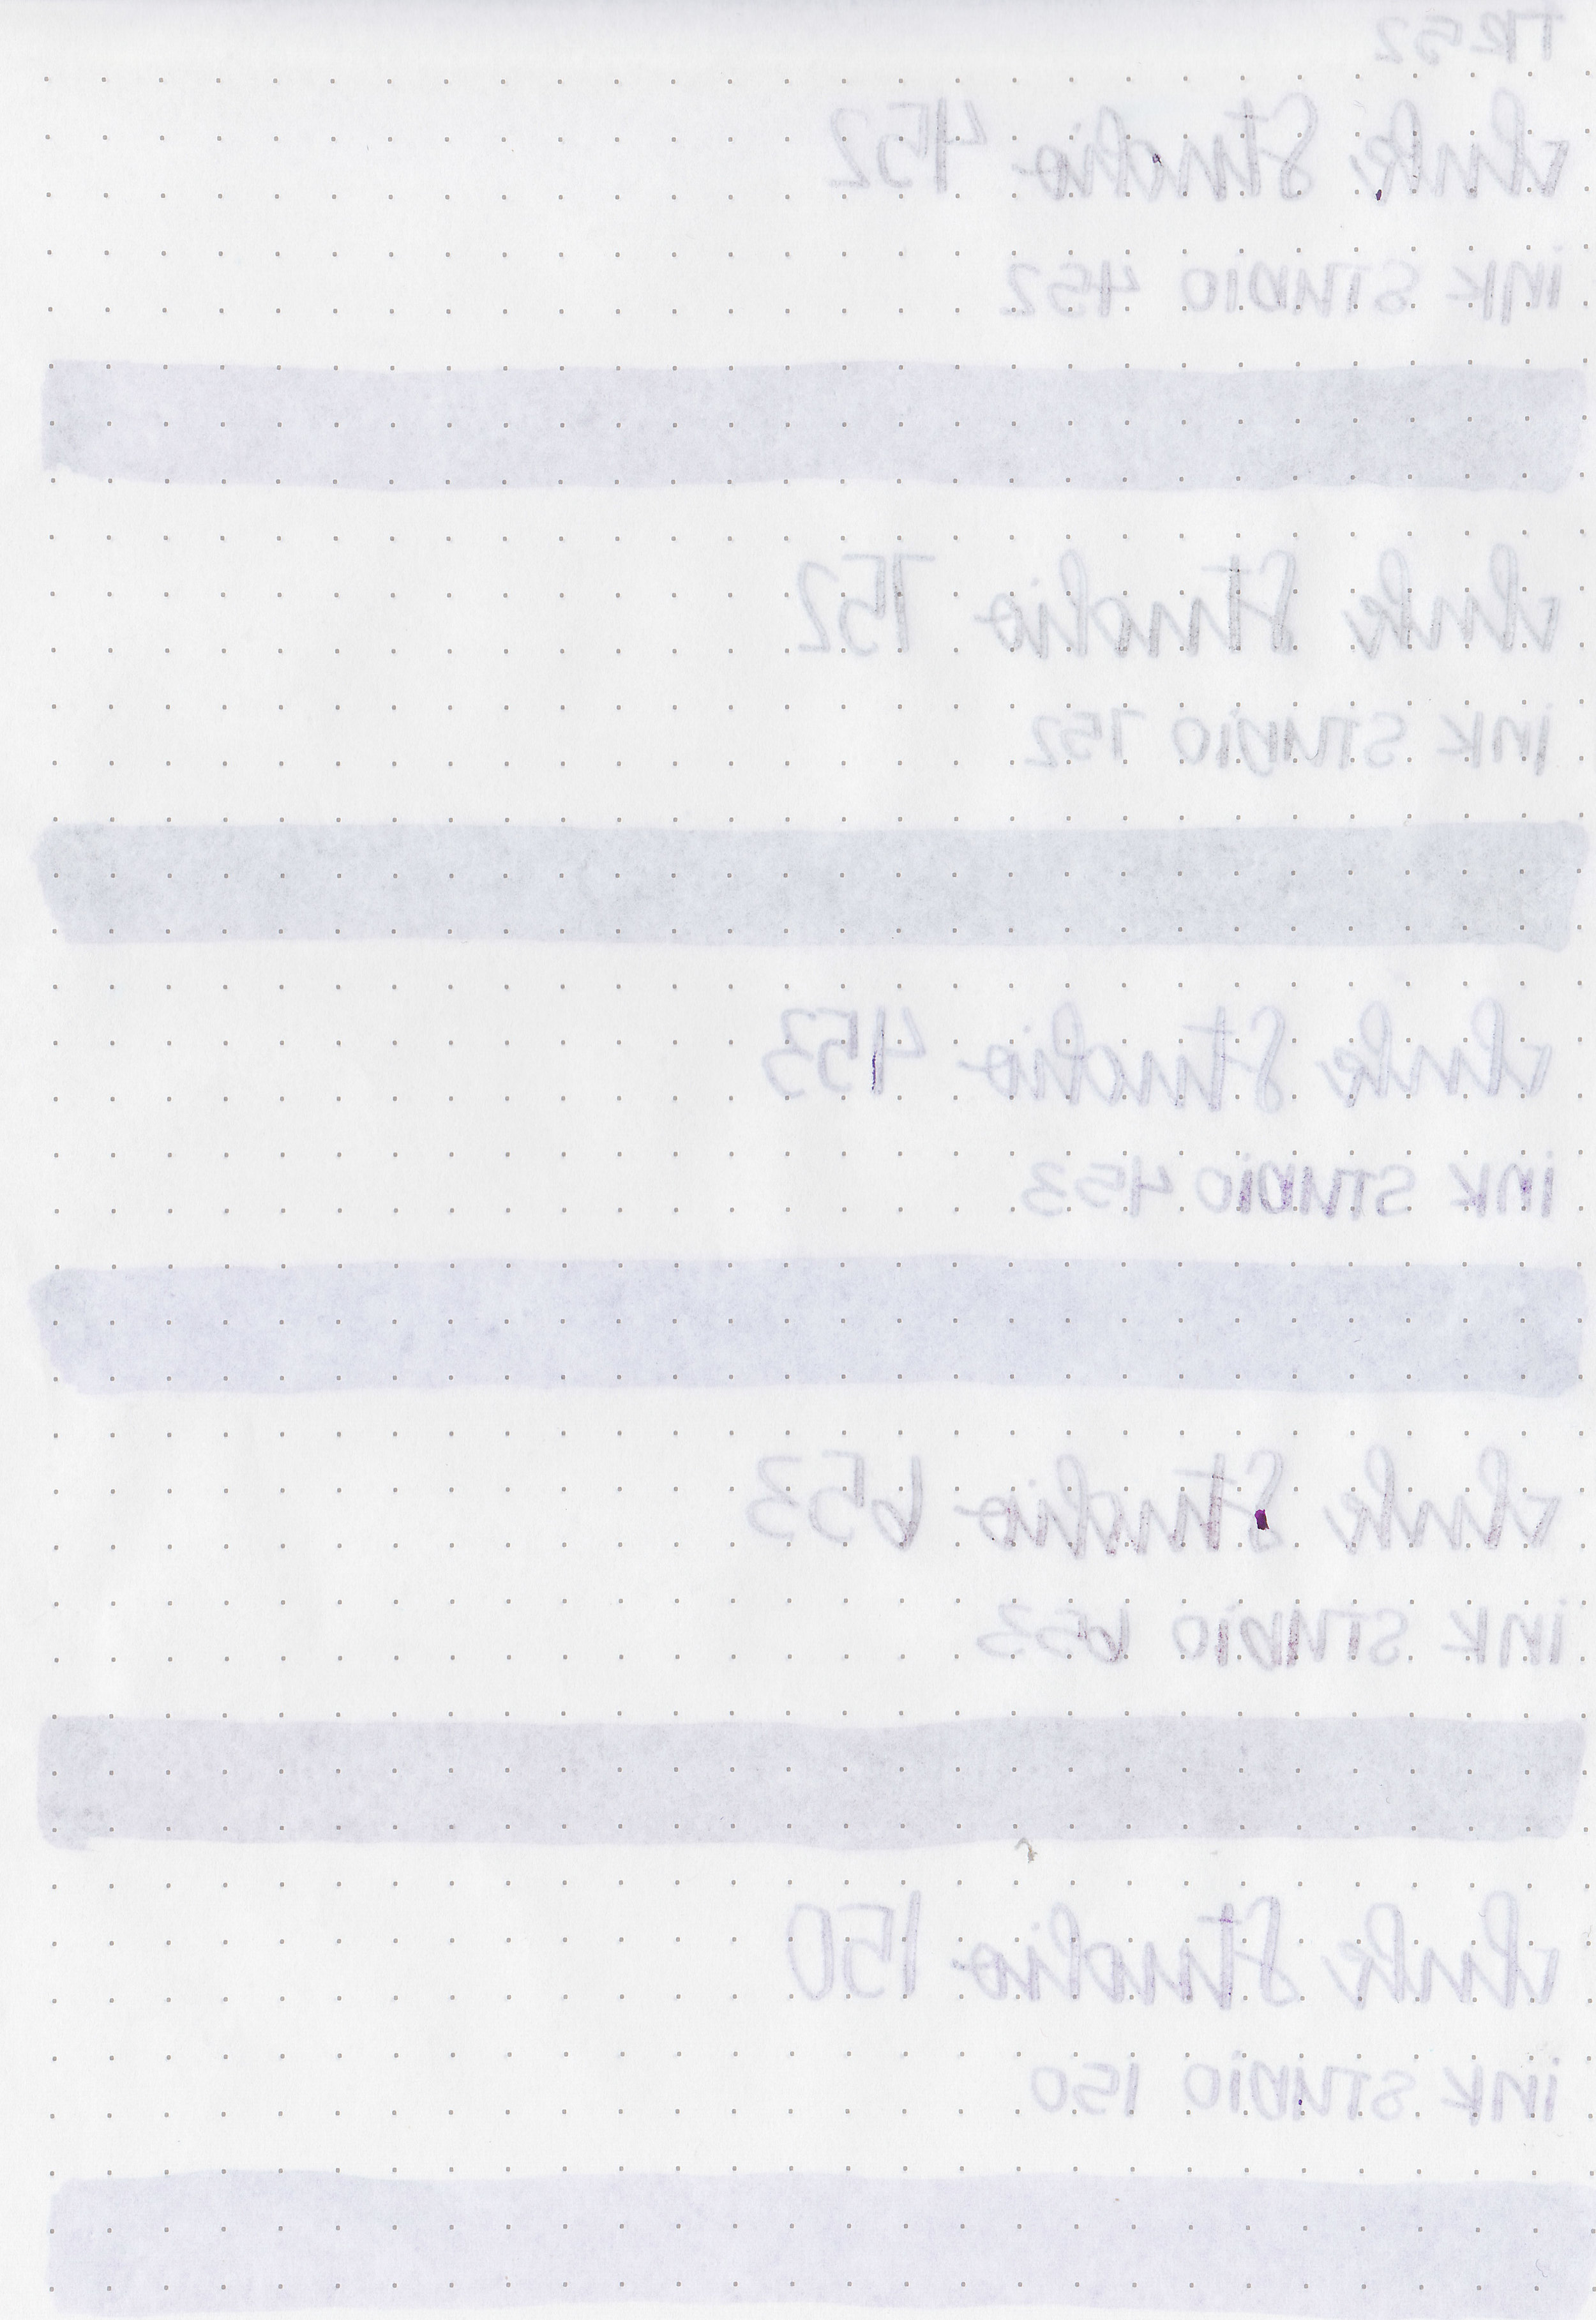 TR 52
Ink Studio 452
INK STUDIO 452
Ink Studio 752
INK STUDIO 752
Ink Studio 453
INK STUDIO 453
Ink Studio 653
INK STUDIO 653
Ink Studio 150
INK STUDIO 150